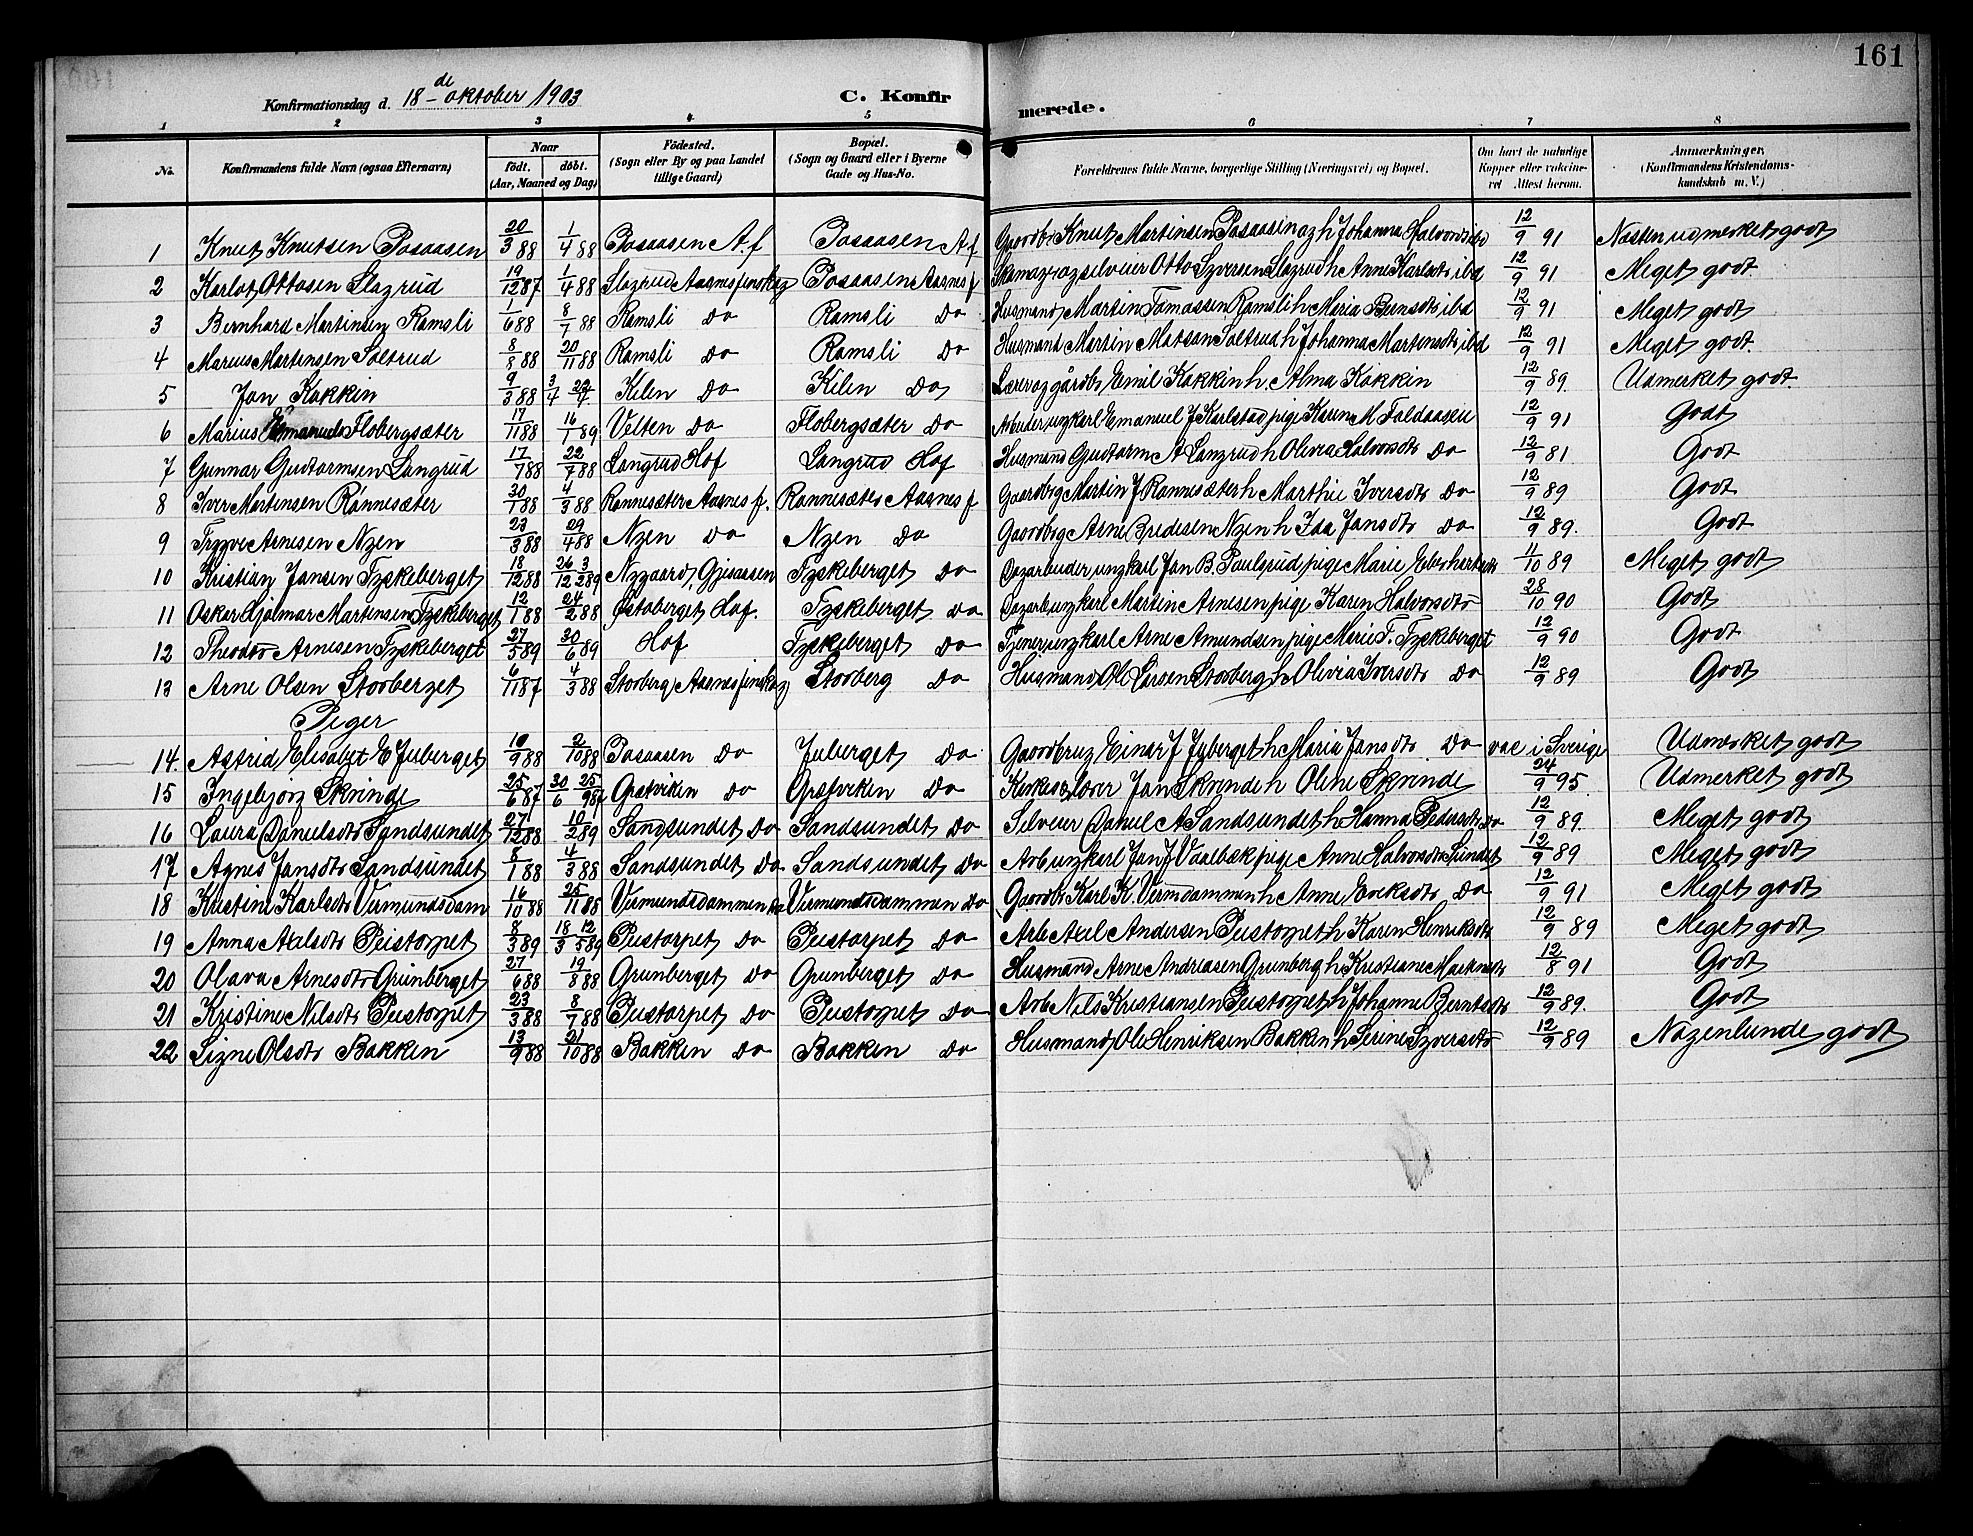 161
Konfirmationsdag d. 18de oktober 1903 C. Konfirmerede.
1 2 3 4 5 6 7 8
No. Konfirmandens fulde Navn (ogsaa Efternavn) Naar født. døbt. (Aar, Maaned og Dag) Fødested. (Sogn eller By og paa Landet tillige Gaard) Bopæl. (Sogn og Gaard eller i Byerne Gade og Hus-No. Forældrenes fulde Navne, borgerlige Stilling (Næringsvei) og Bopæl. Om havt de naturlige Kopper eller vaccineret Attest herom. Anmærkninger. (Konfirmandens Kristendomskundskab m. V.)
1 Knut Knutsen Posaasen 20/3 88 1/4 88 Posaasen A.f Posaasen A.f Gaardbr Knut Martinsen Posaasen og h Johanna Halvorsd ibd 12/9 91 Næsten udmerket godt
2 Karlot Ottosen Slagrud 19/12 87 1/4 88 Slagrud Aasnes finskog Posaasen Aasnes f Skomager og selveier Otto Syversen Slagrud h Anne Karlsdtr ibd 12/9 91 Meget godt
3 Bernhard Martinsen Ramsli 1/6 88 8/7 88 Ramsli Do Ramsli Do Husmand Martin Tomassen Ramsli h Maria Berntsdtr ibd 12/9 91 Meget godt
4 Marius Martinsen Soltrud 8/8 88 20/11 88 Ramsli Do Ramsli Do Husmand Martin Matsen Soltrud h Johanna Martensdtr ibd 12/9 91 Meget godt.
5 Jon Kokkin 9/3 88 3/4 22/7 Kilen Do Kilen Do Lærer og gårdb Emil Kokkin h Alma Kokkin 12/9 89. Udmerket godt
6 Marius Emanuels Flobergsæter 17/11 88 16/1 89 Velten Do Flobergsæter Do Arbuder ungkarl Emanuel J Karlstad pige Karen M Foldaasen 12/9 91 Godt
7 Gunnar Gudtormsen Langrud 17/7 88 22/7 88 Langrud Hof Langrud Hof Husmand Gudtorm A Langrud h Olivia Halvorsdtr Do 12/9 81 Godt
8 Iver Martinsen Rønnesæter 30/1 88 4/3 88 Rønnesæter Aasnes f. Rønnesæter Aasnes f Gaardbrg Martin J Rønnesæter h Marthie Iversdtr Do 12/9 89 Godt
9 Trygve Arnesen Nyen 23/3 88 29/4 88 Nyen Do Nyen Do Gaardbrg Arne Bredesen Nyen h Ida Jansdtr Do 12/9 89. Godt
10 Kristian Jansen Tyskeberget 18/12 88 26/12 3/2 89 Nygaard, Gjesaasen Tyskeberget Do Dagarbuder ungkarl Jan B. Paulsrud pige Marie Eberhartsdtr 11/10 89 Meget godt
11 Oskar Hjalmar Martensen Tyskeberget 12/1 88 24/2 88 Hof. Tyskeberget Do Dagarb ungkarl Martin Arnesen pige Karen Halvorsdtr 28/10 90 Godt
12 Theodor Arnesen Tyskeberget 27/5 89 30/6 89 Hof Tyskeberget Do Tjener ungkarl Arne Amundsen pige Marie T. Tyskeberget 12/9 90 Godt
13 Arne Olsen Storberget 6/11 87 4/3 88 Storberg Aasnes finskog Storberg Do Husmand Ole Larsen Storberg h Olivia Iversdtr Do 12/9 89 Godt
Piger
14. Astrid Elisabet E Juberget 10/9 88 2/10 88 Posaasen Do Juberget Do Gaardbrug Einar J Juberget h Maria Jansdtr Do vac i Sverige Udmerket godt
15 Ingebjørg Skrinde 25/6 87 30/6 25/9 87 Grøtviken Do Grøtviken Do Kirkesa lærer Jan Skrinde h Oline Skrinde 24/9 95. Udmerket godt
16 Laura Danielsdtr Sandsundet 27/12 88 10/2 89 Sandsundet Do Sandsundet Do Selveier Daniel A Sandsundet h Hanna Pedersdtr Do 12/9 89. Meget godt
17 Agnes Jansdtr Sandsundet 8/1 88 4/3 88 Sandsundet Do Sandsundet Do Arb ungkarl Jan J Vaalbek pige Anne Halvorsdtr Sundet 12/9 89 Meget godt
18 Kristine Karlsdtr Vermundsdam 16/10 88 25/11 88 Vermundsdammen Do Vermundsdammen Do Gaardbr Karl K. Vermdammen h Anne Eriksdtr Do 12/9 91 Meget godt
19 Anna Axelsdtr Peistorpet 8/3 89 18/3 12/5 89 Peistorpet Do Peistorpet Do Arb Axel Andersen Peistorpet h Karen Henriksdtr 12/9 89 Meget godt
20 Olava Arnesdtr Grünberget 27/6 88 19/8 88 Grunberget Do Grunberget Do Husmand Arne Andreasen Grunberg h Kristiane 12/8 91 Godt
21 Kristine Nilsdtr Peistorpet 23/3 88 8/7 88 Peistorpet Do Peistorpet Do Arb Nils Kristiansen Peistorpet h Johanne Berntsdtr 12/9 89. Godt
22 Signe Olsdtr Bakken 13/9 88 21/10 88 Bakken Do Bakken Do Husmand Ole Henriksen Bakken h Serine Syversdtr 12/9 89 Nogenlunde godt